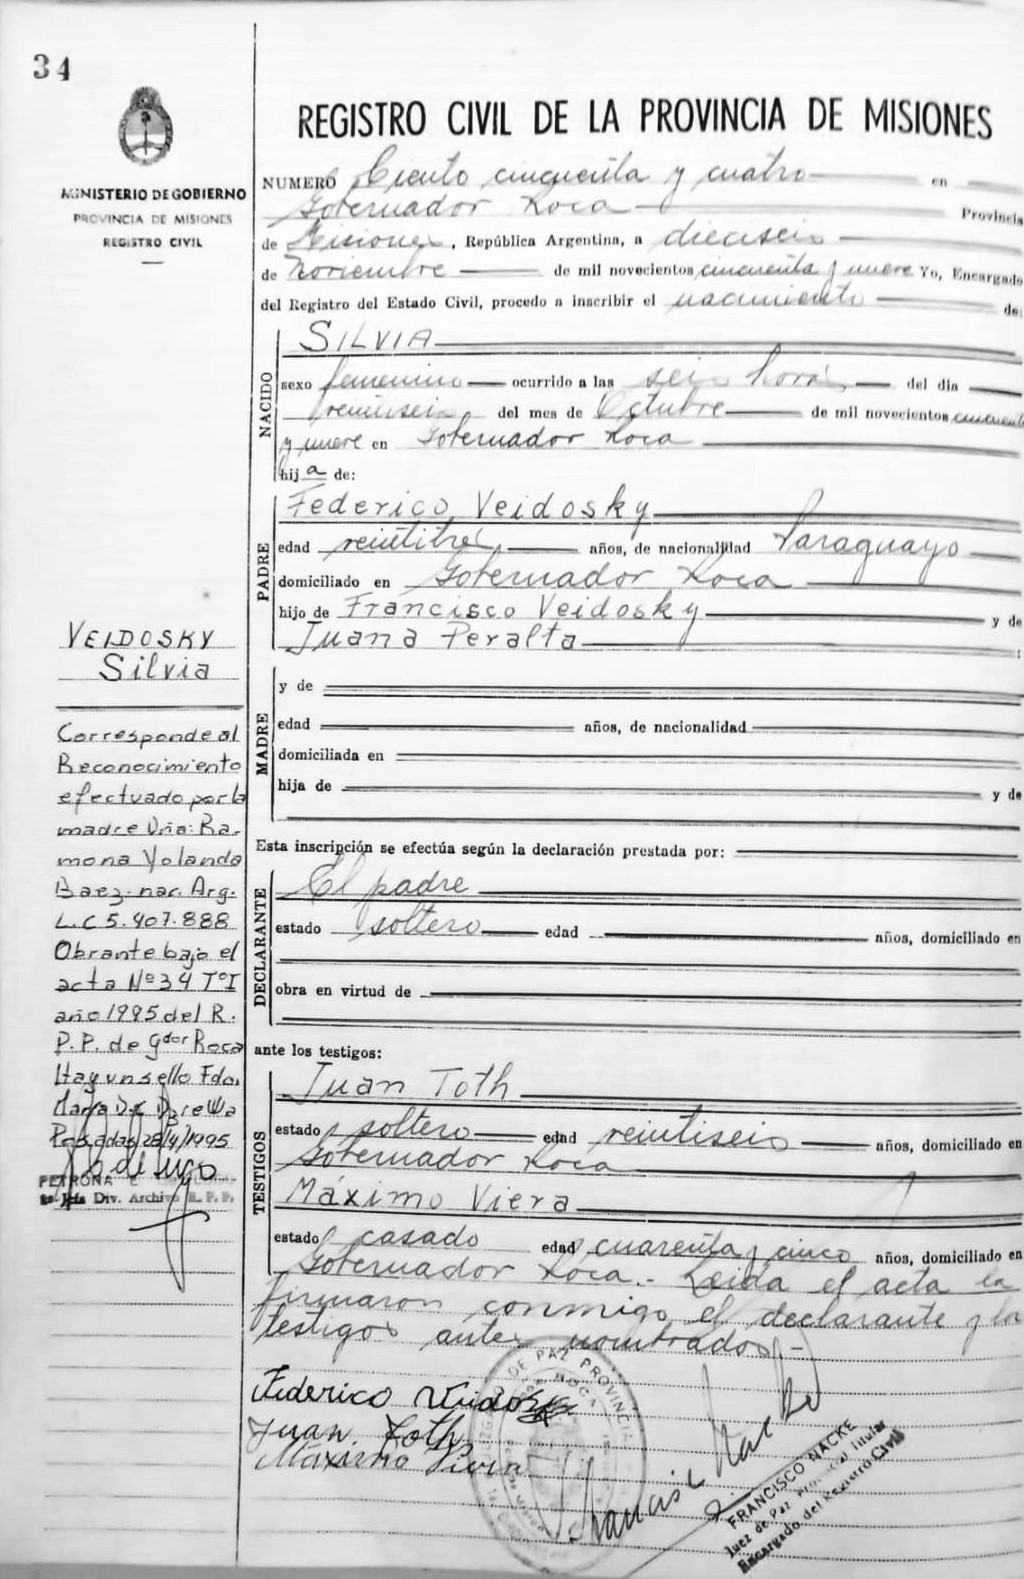 34
MINISTERIO DE GOBIERNO
PROVINCIA DE MISIONES
REGISTRO CIVIL
REGISTRO CIVIL DE LA PROVINCIA DE MISIONES
NUMERO Ciento cincuenta y cuatro en
Gobernador Roca Provincia
de Misiones, República Argentina, a dieciseis
de Noviembre de mil novecientos cincuenta y nueve Yo, Encargado
del Registro del Estado Civil, procedo a inscribir el nacimiento de:
NACIDO
SILVIA
sexo femenino ocurrido a las seis horas del día
veintiseis del mes de Octubre de mil novecientos cincuenta
y nueve en Gobernador Roca
hija de:
PADRE
Federico Veidosky
edad veintitres años, de nacionalidad Paraguayo
domiciliado en Gobernador Roca
hijo de Francisco Veidosky y de
Juana Peralta :
MADRE
y de
edad años, de nacionalidad
domiciliada en
hija de y de
Esta inscripción se efectúa según la declaración prestada por:
DECLARANTE
El padre
estado soltero edad años, domiciliado en
obra en virtud de
ante los testigos:
TESTIGOS
Juan Toth
estado soltero edad veintiseis años, domiciliado en
Gobernador Roca
Máximo Viera
estado casado edad cuarenta y cinco años, domiciliado en
Gobernador Roca.- Leida el acta la
firmaron conmigo el declarante y los
testigos antes nombrados.-
Federico Veidosky
Juan Toth
Máximo Viera
Francisco Nacke
FRANCISCO NACKE
Juez de Paz Provincial Titular
Encargado del Registro Civil
DE PAZ PROVINCIA
ROCA
VEIDOSKY
Silvia
Corresponde al
Reconocimiento
efectuado por la
madre Dña: Ra-
mona Yolanda
Baez. nac. Arg.
L.C 5.407.888
Obrante bajo el
acta Nº 34 TºI
año 1995 del R.
P.P. de Gdor Roca
Hay un sello Fdo.
Maria D.C
Posadas 28/4/1995
PETRONA
Jefa Div. Archivo R. P. P.